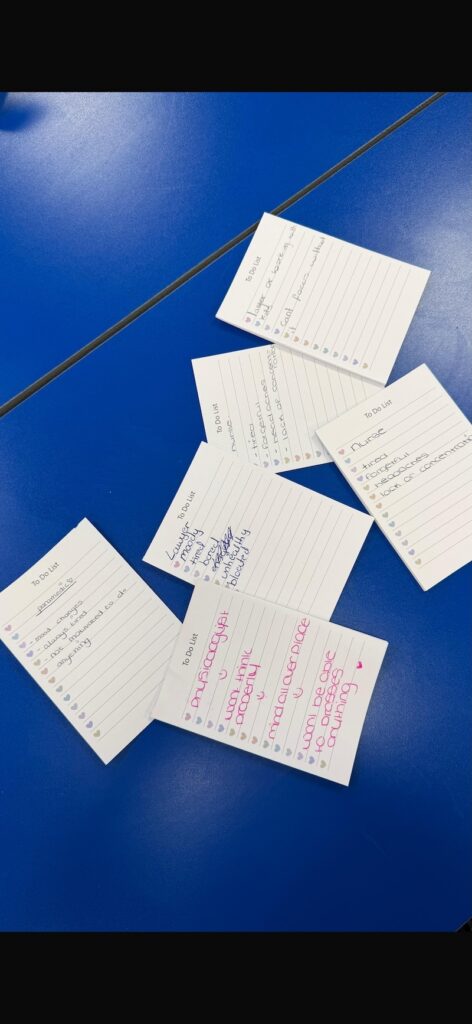 To Do List
layer or working with
kid
cant focus without
it
To Do List
nurse
- tired
- forgetful
- headaches
- lack of concentration
To Do List
Nurse
tired
forgetful
headaches
lack of concentratio
To Do List
Lawyer
moody
tired
bored
unhealthy
bloated
To Do List
paramedics
- mood changes
- always tired
- not motivated to do
anything
To Do List
physicologyst
wont think
properly
mind all over place
wont be able
to prosses
anything